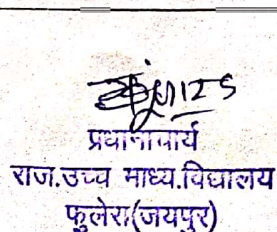 प्रधानाचार्य
राज.उच्च माध्य.विद्यालय
फुलेरा(जयपुर)